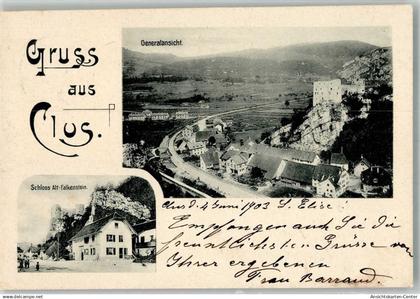 Gruss
aus
Clus.
Generalansicht.
Schloss Alt-Falkenstein.
Clus d. 4 Juni 1903 S. Elise!
Empfangen auch Sie die
freundlichsten Grüsse von
Ihrer ergebenen
Frau Barraud.
www.ansichtskarten-center.de